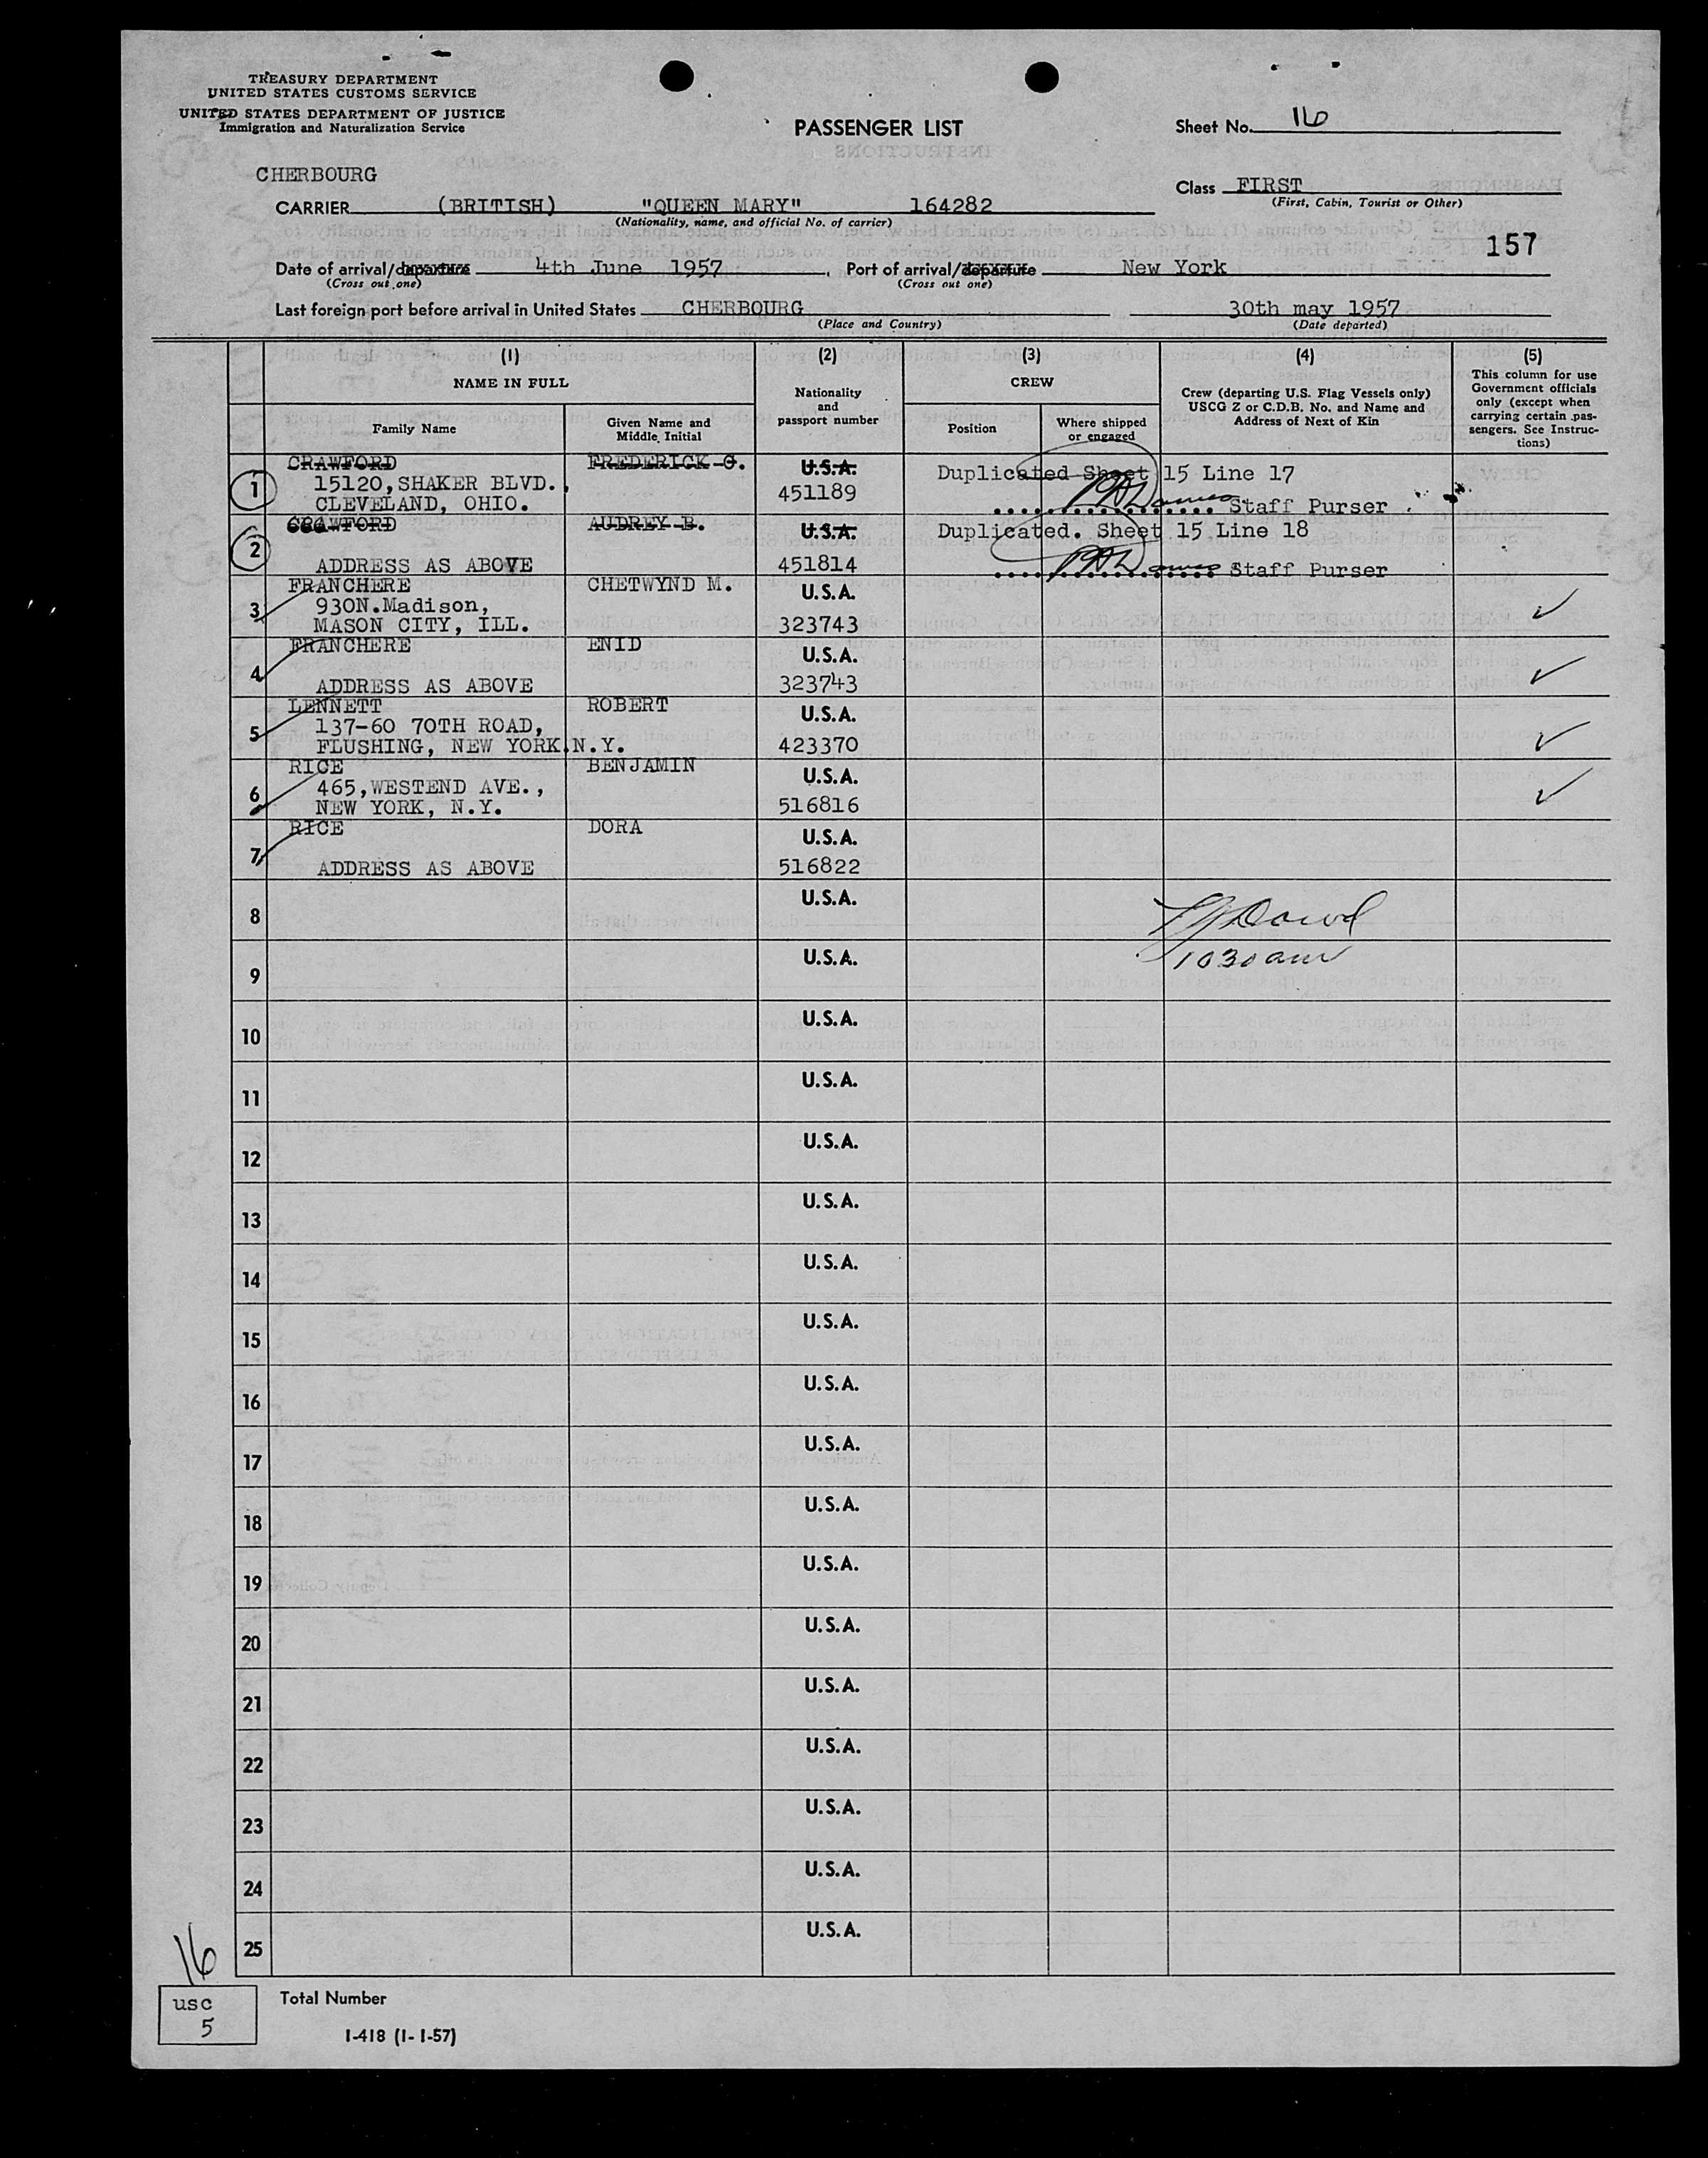 TREASURY DEPARTMENT
UNITED STATES CUSTOMS SERVICE
UNITED STATES DEPARTMENT OF JUSTICE
Immigration and Naturalization Service
PASSENGER LIST
Sheet No. 16
CHERBOURG
Class FIRST
(First, Cabin, Tourist or Other)
CARRIER (BRITISH) "QUEEN MARY" 164282
(Nationality, name, and official No. of carrier)
157
Date of arrival/departure 4th June 1957, Port of arrival/departure New York
(Cross out one) (Cross out one)
Last foreign port before arrival in United States CHERBOURG 30th may 1957
(Place and Country) (Date departed)
(1) (2) (3) (4) (5)
NAME IN FULL
Family Name
Given Name and
Middle Initial
Nationality
and
passport number
CREW
Position
Where shipped
or engaged
Crew (departing U.S. Flag Vessels only)
USCG Z or C.D.B. No. and Name and
Address of Next of Kin
This column for use
Government officials
only (except when
carrying certain pas-
sengers. See Instruc-
tions)
1 CRAWFORD FREDERICK G. U.S.A. Duplicated Sheet 15 Line 17
15120, SHAKER BLVD. 451189
CLEVELAND, OHIO. Staff Purser
2 CRAWFORD AUDREY B. U.S.A. Duplicated. Sheet 15 Line 18
ADDRESS AS ABOVE 451814 Staff Purser
3 FRANCHERE CHETWYND M. U.S.A.
930N.Madison,
MASON CITY, ILL. 323743
4 FRANCHERE ENID U.S.A.
ADDRESS AS ABOVE 323743
5 LENNETT ROBERT U.S.A.
137-60 70TH ROAD,
FLUSHING, NEW YORK.N.Y. 423370
6 RICE BENJAMIN U.S.A.
465,WESTEND AVE.,
NEW YORK, N.Y. 516816
7 RICE DORA U.S.A.
ADDRESS AS ABOVE 516822
8 U.S.A.
9 U.S.A. 1030 am
10 U.S.A.
11 U.S.A.
12 U.S.A.
13 U.S.A.
14 U.S.A.
15 U.S.A.
16 U.S.A.
17 U.S.A.
18 U.S.A.
19 U.S.A.
20 U.S.A.
21 U.S.A.
22 U.S.A.
23 U.S.A.
24 U.S.A.
25 U.S.A.
16
usc
5
Total Number
I-418 (1-1-57)